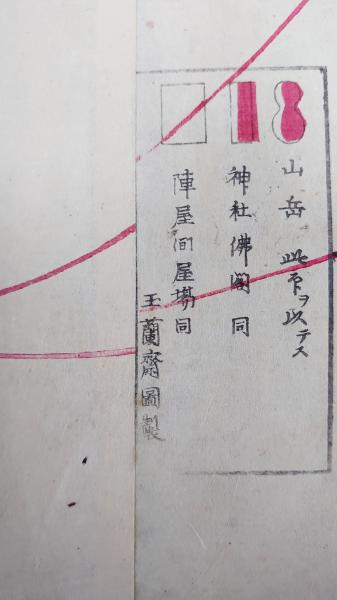 山岳 此印ヲ以テス
神社佛閣 同
陣屋間屋場 同
玉蘭齋圖製